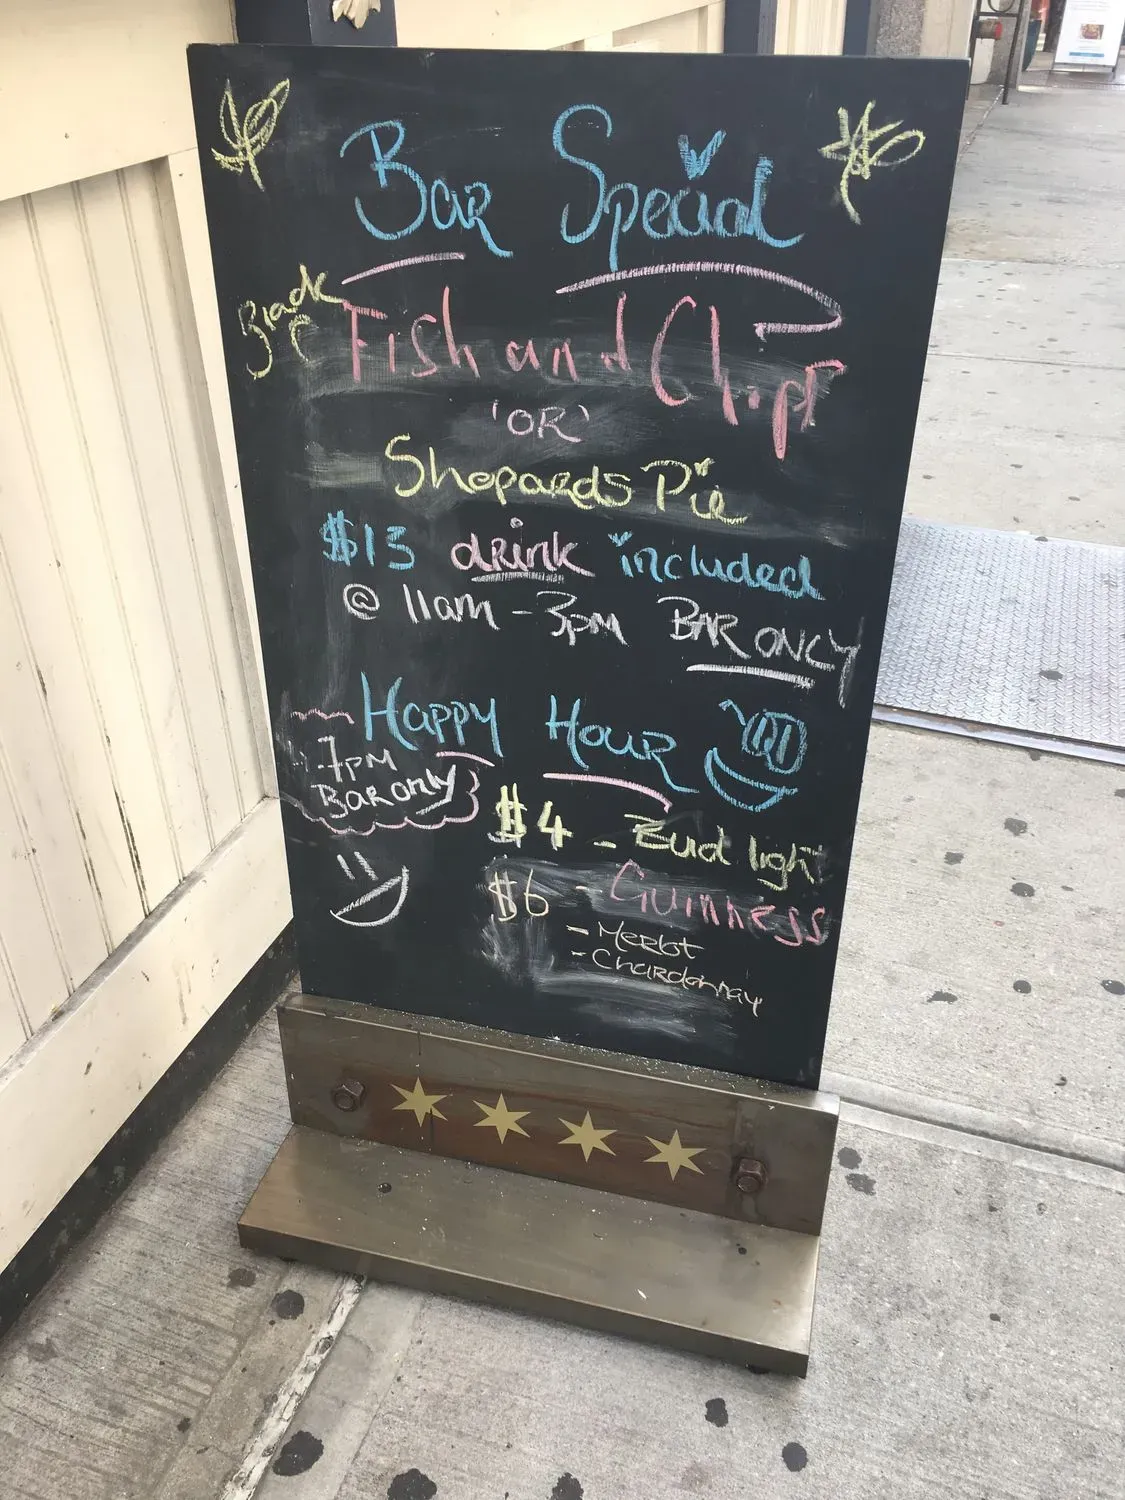 Bar Special
Fish and Chips
'OR'
Shepards Pie
$13 drink included
@ 11am - 3pm BAR ONLY
Happy Hour
-7pm
Bar only
$4 - Bud light
$6 - Guinness
- Merlot
- Chardonnay